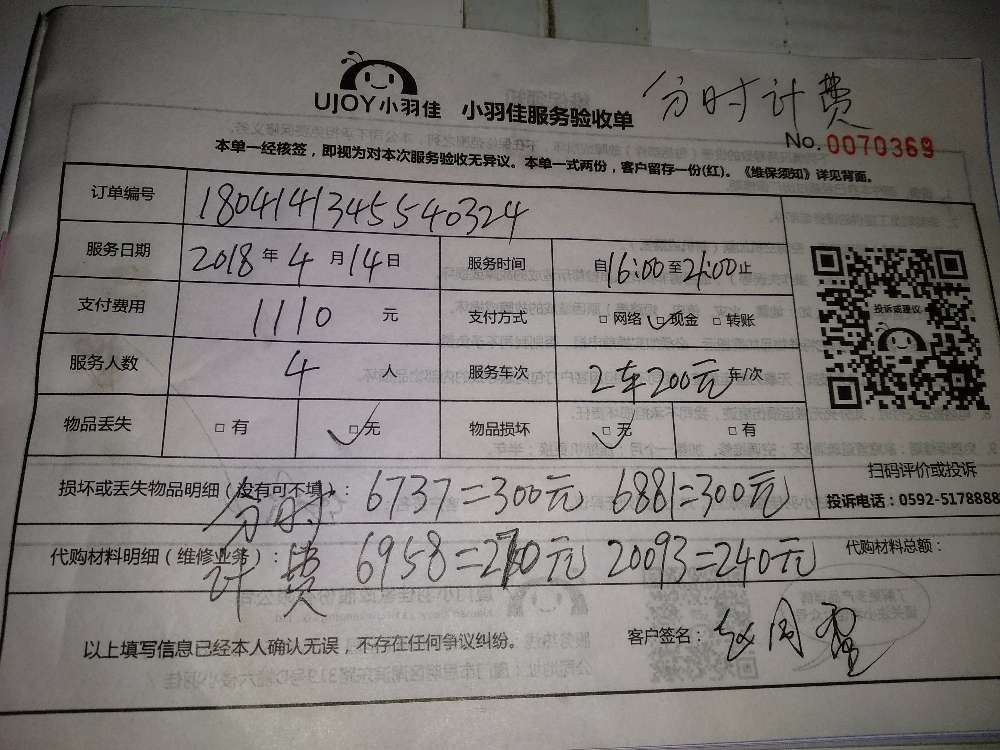 分时计费
UJOY小羽佳 小羽佳服务验收单
No.0070369
本单一经核签，即视为对本次服务验收无异议。本单一式两份，客户留存一份(红)。《维保须知》详见背面。
订单编号 1804141345540324
服务日期 2018年4月14日 服务时间 自16:00至21:00止
支付费用 1110元 支付方式 □网络 □现金 □转账
投诉或建议
服务人数 4人 服务车次 2车200元 车/次
物品丢失 □有 □无 物品损坏 □无 □有
扫码评价或投诉
投诉电话：0592-5178888
损坏或丢失物品明细（没有可不填）： 6737=300元 6881=300元
分时
代购材料明细（维修业务）： 6958=270元 20093=240元 代购材料总额：
计费
以上填写信息已经本人确认无误，不存在任何争议纠纷。 客户签名：